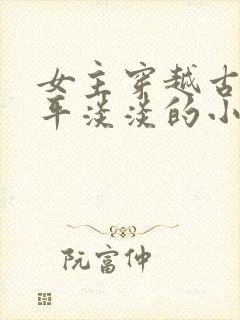 女主穿越古
平淡淡的小
阮富仲